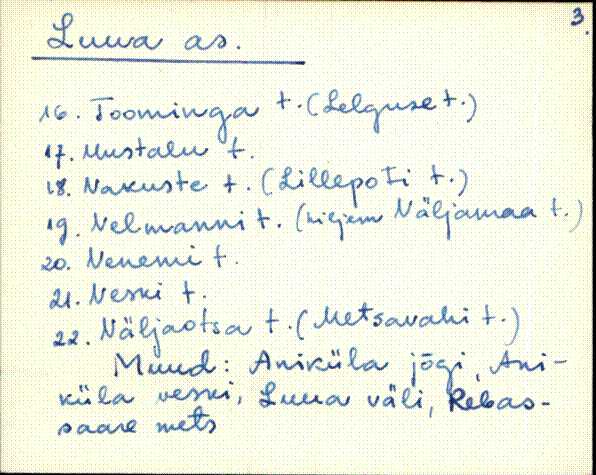 3.
Luua as.
16. Toominga t. (Lelguse t.)
17. Mustalu t.
18. Nakuste t. (Lillepoti t.)
19. Nelmanni t. (hiljem Näljamaa t.)
20. Nenemi t.
21. Neski t.
22. Näljaotsa t. (Metsavahi t.)
Muud: Aniküla jõgi, Ani-
küla veski, Luua väli, Rebas-
saare mets